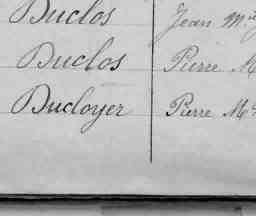 Duclos Jean M
Duclos Pierre M
Ducloyer Pierre M